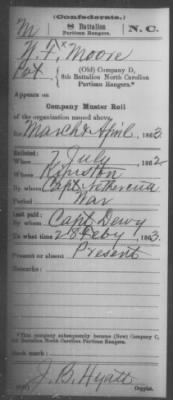 (Confederate.)
M 8 Battalion Partisan Rangers. N. C.
W. F. Moore
Pvt, (Old) Company D,
8th Battalion North Carolina
Partisan Rangers.*
Appears on
Company Muster Roll
of the organization named above,
for March & April, 1863.
Enlisted:
When 7 July, 1862
Where
By whom Capt.
Period War
Last paid:
By whom Capt Dewy
To what time 28 Feby, 1863.
Present or absent Present
Remarks:
*This company subsequently became (New) Company C,
8th Battalion North Carolina Partisan Rangers.
Book mark:
J. B. Hyatt
Copyist.